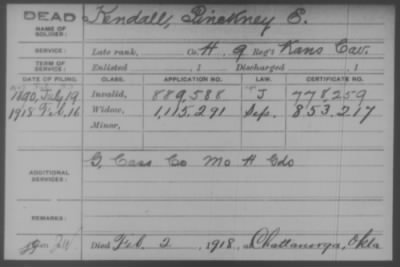 DEAD
NAME OF SOLDIER: Kendall, Pinckney S.
SERVICE: Late rank, Co. H, 9 Reg't Kans Cav.
TERM OF SERVICE: Enlisted , 1 Discharged , 1
DATE OF FILING. CLASS. APPLICATION NO. LAW. CERTIFICATE NO.
1890, July 19 Invalid, 889,588 J 778,259
1918 Feb. 16 Widow, 1,115,291 853,217
Minor,
ADDITIONAL SERVICES: G, Cass Co Mo H Gds
REMARKS:
Died Feb. 2, 1918, at Chattanooga, Okla